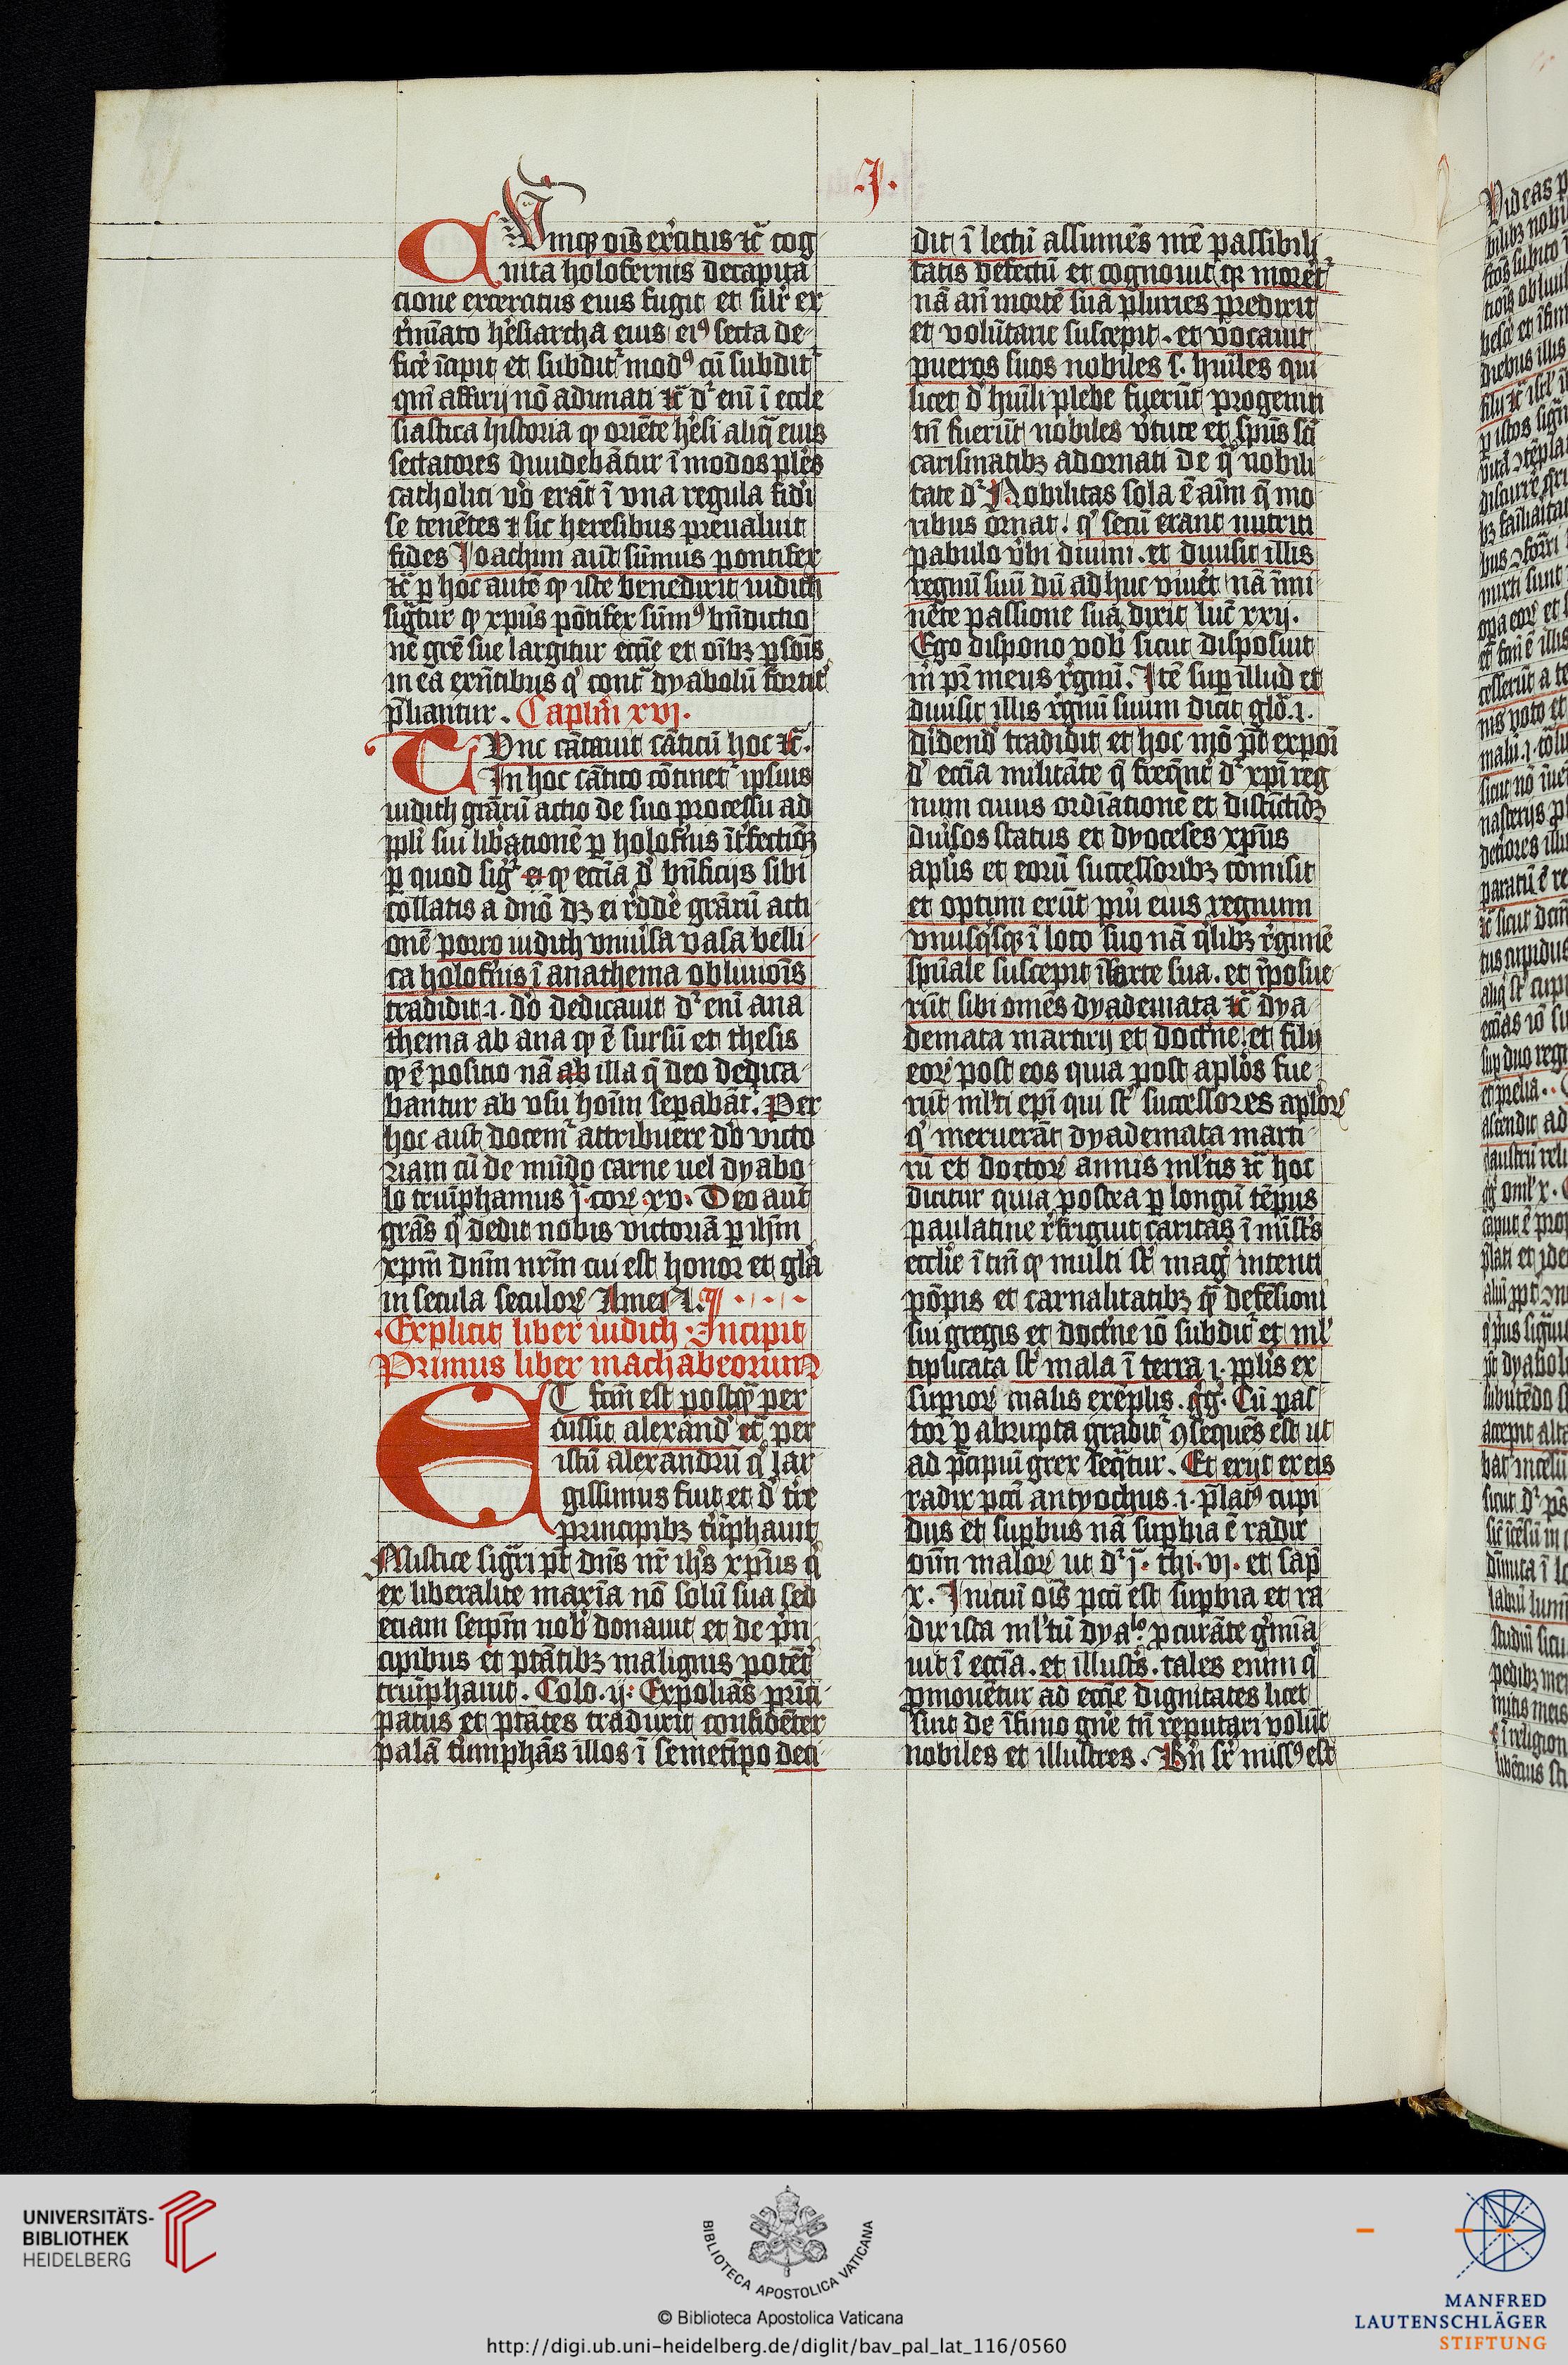 .I.
CVmq; oīs ex̄citus ⁊c̄ cog
nita holofernis decapita
cione exercitus eius fugit et silr̄ ex
t̄miato h̓esiarcha eius ei⁹ secta de
fic̓e īcipit et subdit̄ mod⁹ cū subdit̄
qm̄ assirij nō adunati ⁊c̄ d̄r enī ī eccle
siastica historia ꝙ oriēte h̓esi aliq̄ eius
sectatores diuidebātur ī modos ples
catholici v̓o erāt ī vna regula fid̓i
se tenētes ⁊ sic heresibus preualuit
fides Ioachim aūt sūmus pontifex
⁊c̄ ꝑ hoc autē ꝙ iste benedixit iudith
siḡtur ꝙ xp̄us pōtifex sūm⁹ bn̄dictio
nē gr̄e sue largitur eccīe et oībꝫ ꝑsōis
in ea exn̄tibus q̓ cont̄ dyabolū fortit̓
p̄liantur. Caplm̄ xvj.
TVnc cātauit cāticū hoc ⁊c̄.
In hoc cātico cōtinet̄ ipsius
iudith gr̄arū actio de suo processu ad
ppl̓i sui lib̓ationē ꝑ holof̓nis īt̓fectiōꝫ
ꝑ quod siḡr ꝙ eccīa d̓ bn̄ficijs sibi
collatis a dn̄o dꝫ ei r̓dd̓e gr̄arū acti
onē porro iudith vniu̓sa vasa belli
ca holof̓nis ī anathema obliuiōis
tradidit .i. d̓o dedicauit d̄r enī ana
thema ab ana ꝙ ē sursū et thesis
ꝙ ē positio nā ab illa q̄ deo dedica
bantur ab vsu hoīm sep̄abāt̄. Per
hoc aūt docem̄ attribuere d̓o victo
riam cū de mūdo carne uel dyabo
lo triūphamus j cor. xv. Deo aūt
gr̄as q̓ dedit nobis victoriā ꝑ ihm̄
xpm̄ dnm̄ nrm̄ cui est honor et gl̓a
in secula seculoꝝ Amen.
Explicit liber iudith Incipit
Primus liber machabeorum
ET fcm̄ est postq̄ per
cussit alexand̓ ⁊c̄ per
istū alexandrū q̓ lar
gissimus fuit et d̓
principibꝫ t̓ūphauit
Mistice sig̓ri pt̄ dn̄s nr̄ ih̄s xp̄us q̓
ex liberalite maxīa nō solū sua sed
eciam seip̄m nob̓ donauit et de p̓n
cipibus et ptātibꝫ malignis potēt̓
triūphauit. Colo. ij: Expoliās prīci
patus et ptātes traduxit confidēter
palā t̓iumphās illos ī semetīpo deci
dit ī lectū assumēs nr̄e passibili
tatis defectū et cognouit qꝛ moret̄
nā an̄ mortē suā pluries predixit
et volūtarie suscepit. et vocauit
pueros suos nobiles s. hūiles qui
licet d̓ hūili plebe fuerūt progeniti
tn̄ fuerūt nobiles v̓tute et sp̄us sc̄i
carismatibꝫ adornati de q̓ nobili
tate d̄r Nobilitas sola ē aīm q̄ mo
ribus ornat. q̓ secū erant nutriti
pabulo v̓bi diuini. et diuisit illis
regnū suū dū adhuc viuēt nā īmi
nēte passione sua dixit luc̄ xxij.
Ego dispono vob̓ sicut disposuit
m̓ pr̄ meus r̓gnū. Itē suꝑ illud et
diuisit illis r̓gnū suum dicit glo. i.
diuidend̓ tradidit et hoc mō pt̄ expoī
d̓ eccīa militāte q̄ freq̄nt̓ d̄r xpī reg
num cuius ordīatione et distīctiōꝫ
diu̓sos status et dyoceses xp̄us
apl̓is et eorū successoribꝫ cōmisit
et optinuerūt pu̓i eius regnum
vnusq̓sqꝫ ī loco suo nā q̓libꝫ r̓gimē
sp̄uale suscepit ī arte sua. et īposue
rūt sibi omēs dyademata ⁊c̄ dya
demata martirij et doct̓ne. et filij
eoꝝ post eos quia post apl̓os fue
rūt ml̓ti epī qui st̄ successores apl̓oꝝ
q̓ meruerāt dyademata marti
rū et doctoꝝ annis ml̓tis ⁊c̄ hoc
dicitur quia postea ꝑ longū tēpus
paulatine r̓frigiuit caritas ī mīst̓s
eccl̓ie ī tm̄ ꝙ multi st̄ mag̓ intenti
pōpis et carnalitatibꝫ q̄ defēsioni
sui gregis et doct̓ne iō subdit̄ et ml̓
tiplicata st̄ mala ī terra .i. ppl̓is ex
supioꝝ malis exēplis. gg̓. Cū pas
tor ꝑ abrupta gradit̄ ꝯsequēs est ut
ad p̄cipiciū grex seq̄tur. Et exijt ex eis
radix pcc̄i antyochus .i. p̄lat⁹ cupi
dus et suꝑbus nā suꝑbia ē radix
oīm maloꝝ ut d̄r j. thi. vj. et sap̄
x. Iniciū oīs pcc̄i est suꝑbia et ra
dix ista ml̓tū dyalo. ꝓcurāte g̓mīa
uit ī eccīa. et illust̓s. tales enim q̓
ꝓmouētur ad eccīe dignitates licet
sint de īfimo gn̓e tn̄ reputari volūt
nobiles et illustres. Bn̄ sr̄ miss⁹ est
UNIVERSITÄTS-
BIBLIOTHEK
HEIDELBERG
BIBLIOTECA APOSTOLICA VATICANA
© Biblioteca Apostolica Vaticana
http://digi.ub.uni-heidelberg.de/diglit/bav_pal_lat_116/0560
MANFRED
LAUTENSCHLÄGER
STIFTUNG